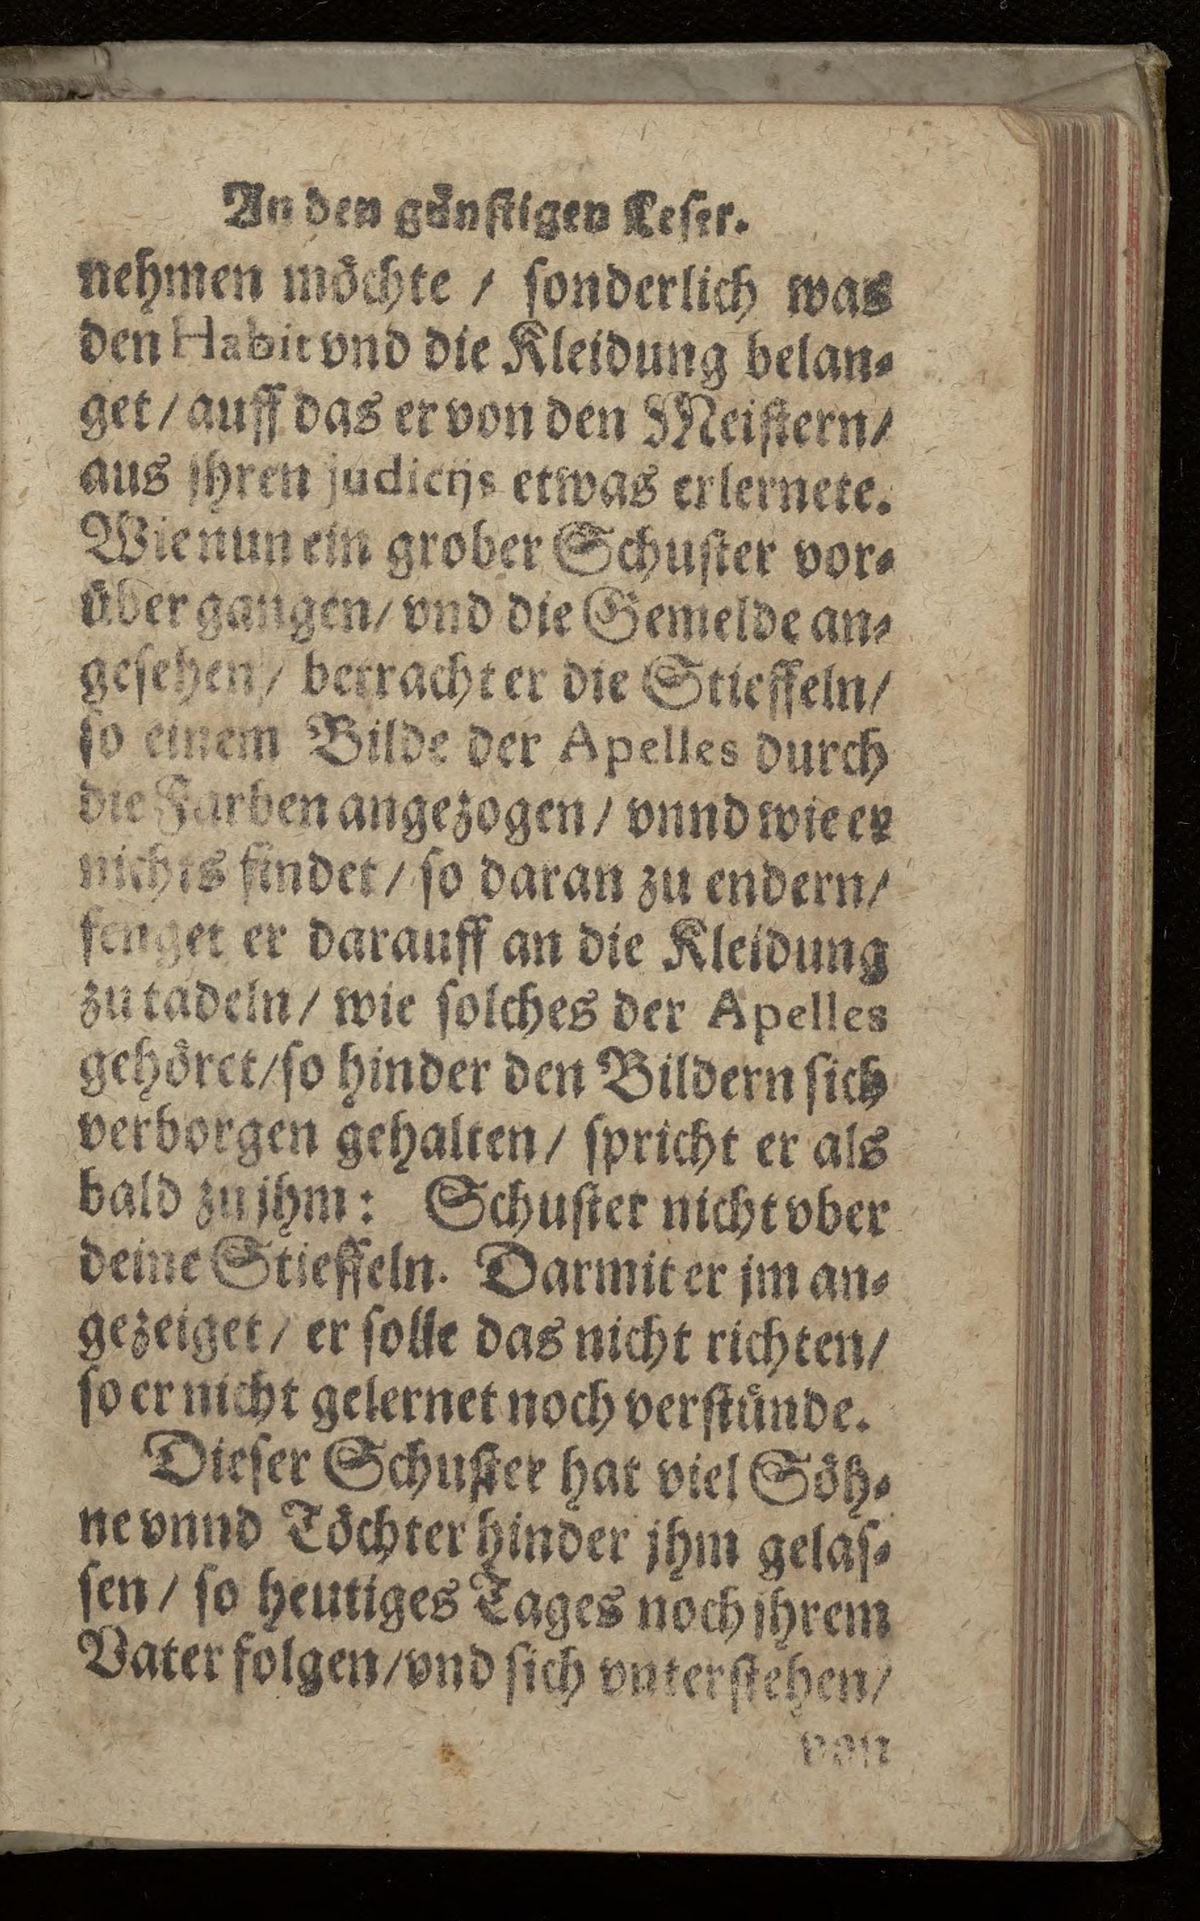 An den günstigen Leser.
nehmen möchte / sonderlich was
den Habit vnd die Kleidung belan-
get / auff das er von den Meistern/
aus jhren judicijs etwas erlernete.
Wie nun ein grober Schuster vor-
über gangen/ vnd die Gemelde an-
gesehen / betrachter er die Stieffeln/
so einem Bilde der Apelles durch
die Farben angezogen / vnnd wie er
nichts findet / so daran zu endern/
fenget er darauff an die Kleidung
zu tadeln / wie solches der Apelles
gehöret/so hinder den Bildern sich
verborgen gehalten / spricht er als
bald zu jhm: Schuster nicht vber
deine Stieffeln. Darmit er jm an-
gezeiget / er solle das nicht richten/
so er nicht gelernet noch verstünde.
Dieser Schuster hat viel Söh-
ne vnnd Töchter hinder jhm gelas-
sen / so heutiges Tages noch jhrem
Vater folgen/vnd sich vnterstehen/
von